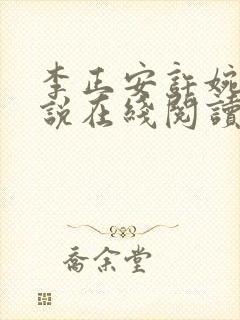 李正安許婉
說在綫閱讀
喬余堂